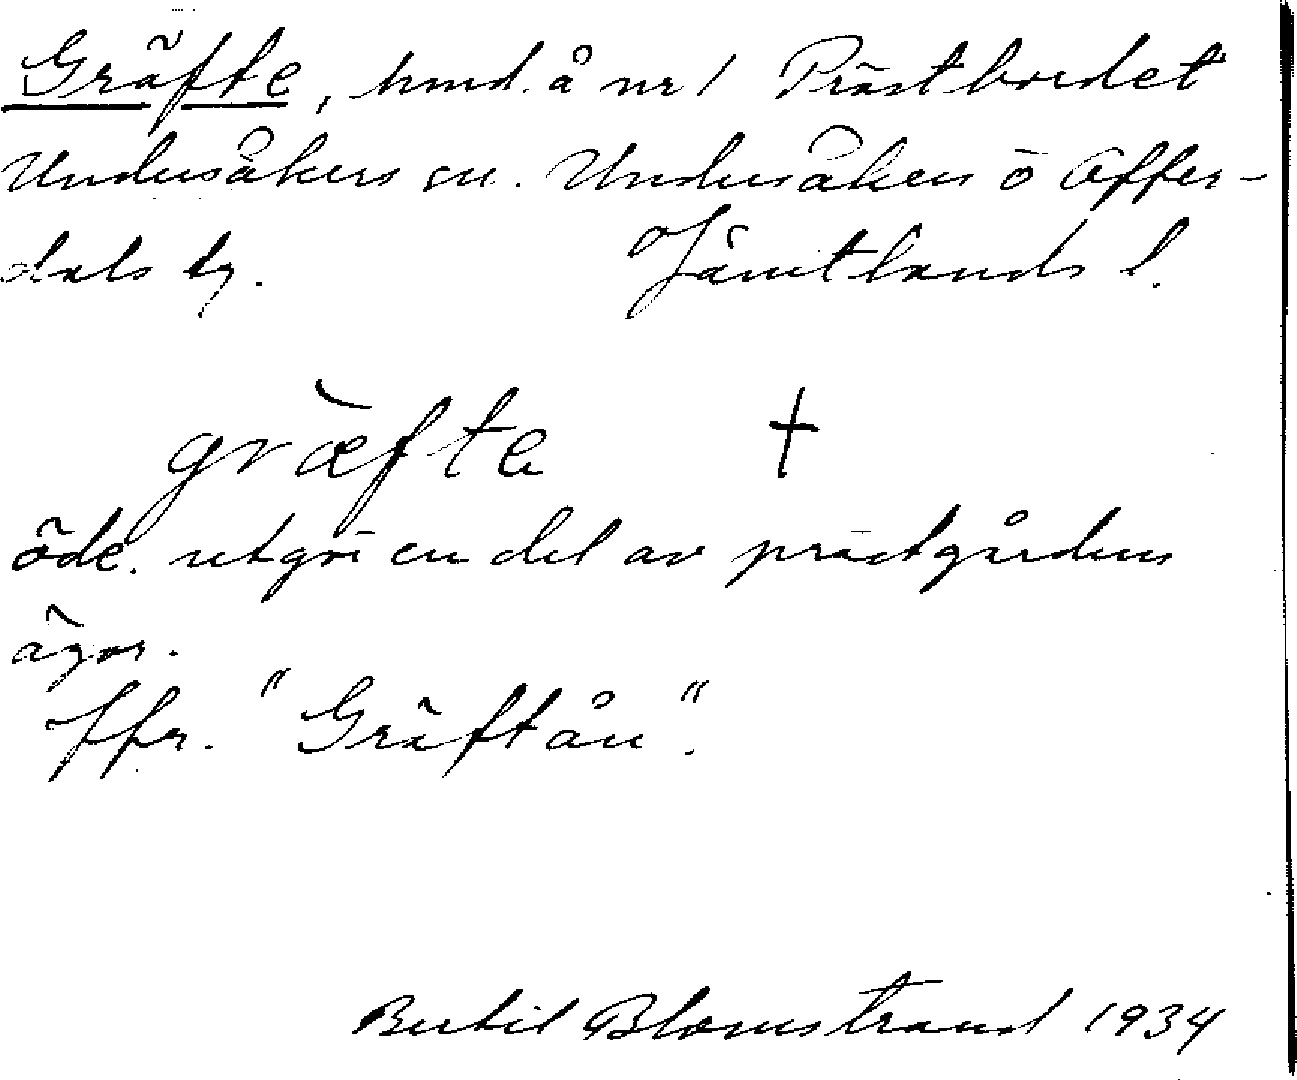 Gräfte, hmd. å nr 1 Prästbordet
Undersåkers sn. Undersåkers o Offer-
dals tg. Jämtlands l.
græ̀fte †
öde. utgör en del av prästgårdens
ägor.
Jfr. "Gräftån".
Bertil Blomstrand 1934